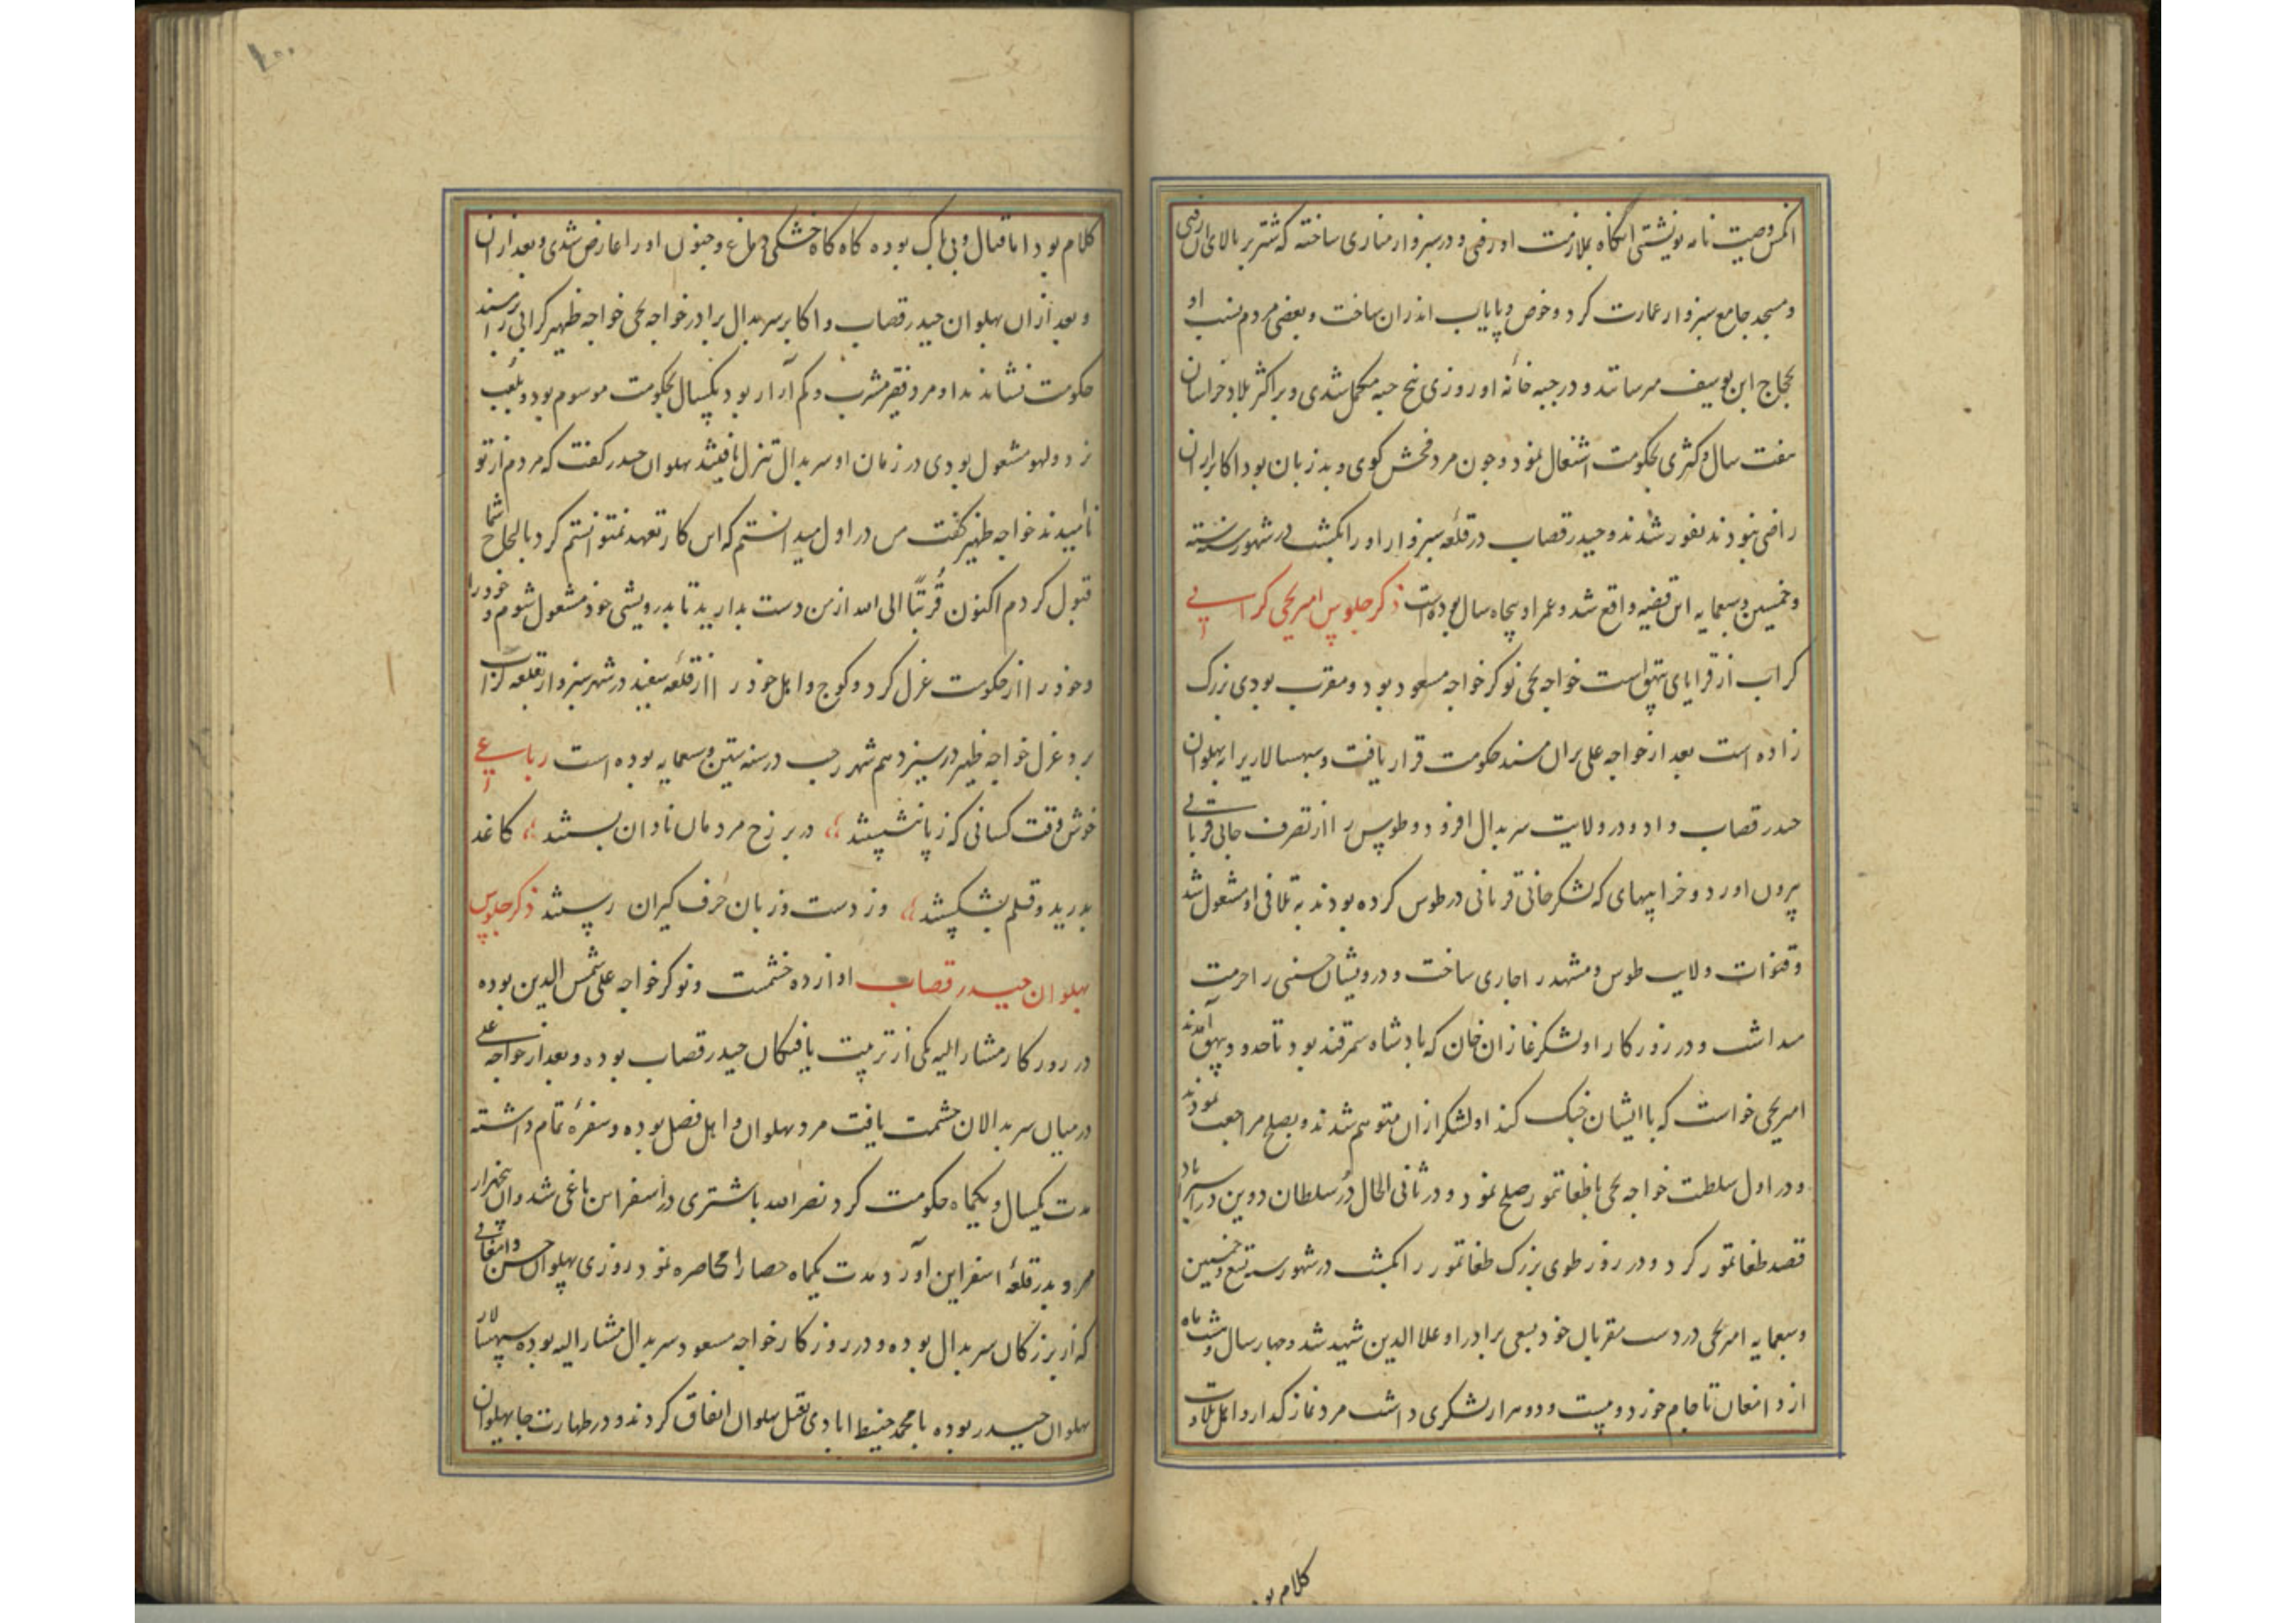 انکس وصیت نامه نوشتی انگاه بملازمت او رفتی و در سبزوار مناری ساخته که شتر بر بالای ان رفتی
و مسجد جامع سبزوار عمارت کرد و حوض و پایاب اندران ساخت و بعضی مردم بنسب او
بحجاج ابن یوسف میرسانند و در جبه خانه او روزی پنج جبه مکمل شدی و بر اکثر بلاد خراسان
هفت سال و کثری بحکومت اشتغال نمود و چون مرد فحش کوی و بد زبان بود اکابر از ان
راضی نبودند نفور شدند و حیدر قصاب در قلعه سبزوار او را بکشت در شهور سنه ستة
و خمسین و سبعمایه این قضیه واقع شد و عمر او پنجاه سال بوده است ذکر جلوس امیر یحیی کرابی
کراب از قرایای بیهق است خواجه یحیی نوکر خواجه مسعود بود و مقرب بودی بزرک
زاده است بعد از خواجه علی بر ان مسند حکومت قرار یافت و سپهسالاری را به پهلوان
حیدر قصاب داد و در ولایت سربدال افزود و طوس را از تصرف جانی قربانی
بیرون اورد و خرابیهای که لشکر جانی قربانی در طوس کرده بودند به تلافی او مشغول شد
و قنوات ولایت طوس و مشهد را جاری ساخت و درویشان حسنی را حرمت
میداشت و در روزکار او لشکر غازان خان که پادشاه سمرقند بود تا حدود بیهق آمدند
امیر یحیی خواست که با ایشان جنک کند او لشکر از ان متوهم شدند و بصلح مراجعت نمودند
و در اول سلطنت خواجه یحیی با طغاتمور صلح نمود و در ثانی الحال در سلطان دوین در استراباد
قصد طغاتمور کرد و در روز طوی بزرک طغاتمور را بکشت در شهور سنه تسع و خمسین
و سبعمایه امیر یحیی در دست مقربان خود بسعی برادر او علا الدین شهید شد و چهار سال و شش ماه
از دامغان تا جام خورد و بیست و دو هزار لشکری داشت مرد نماز کذار و اهل تلاوت
کلام بو
کلام بود اما قتال و بی باک بوده کاه کاه خشکی دماغ و جنون او را عارض شدی و بعد از ان
و بعد از ان پهلوان حیدر قصاب و اکابر سربدال برادر خواجه یحیی خواجه ظهیر کرابی را بر مسند
حکومت نشاندند او مرد فقیر مشرب و کم آزار بود یکسال بحکومت موسوم بود و بلعب
نرد و لهو مشغول بودی در زمان او سربدال تنزل یافتند پهلوان حیدر کفت که مردم از تو
ناامیدند خواجه ظهیر کفت من در اول میدانستم که این کار تعهد نمیتوانستم کرد بالحاح شما
قبول کردم اکنون قربتا الی الله از من دست بدارید تا بدرویشی خود مشغول شوم و خود را
و خود را از حکومت عزل کرد و کوچ و اهل خود را از قلعه سفید در شهر سبزوار بقلعه کراب
برد و عزل خواجه ظهیر در سیزدهم شهر رجب در سنه ستین و سبعمایه بوده است رباعی
خوش وقت کسانی که ز پا بنشستند در بر رخ مردمان نادان بستند کاغد
بدریدند و قلم بشکستند وز دست و زبان حرف کیران رستند ذکر جلوس
پهلوان حیدر قصاب او از ده خشمت و نوکر خواجه علی شمس الدین بوده
در روزکار مشار الیه یکی از تربیت یافتکان حیدر قصاب بوده و بعد از خواجه علی
در میان سربدالان حشمت یافت مرد پهلوان و اهل فضل بوده و سفره تمام داشته
مدت یکسال و یکماه حکومت کرد نصر الله باشتری در اسفراین یاغی شد و ان پنجهزار
مرد بدر قلعه اسفراین آورد و مدت یکماه حصار را محاصره نمود روزی پهلوان حسن دامغانی
که از بزرکان سربدال بوده و در روزکار خواجه مسعود سربدال مشار الیه بوده سپهسالار
پهلوان حیدر بوده با محمد ابادی بقتل پهلوان اتفاق کردند و در طهارت جا پهلوان